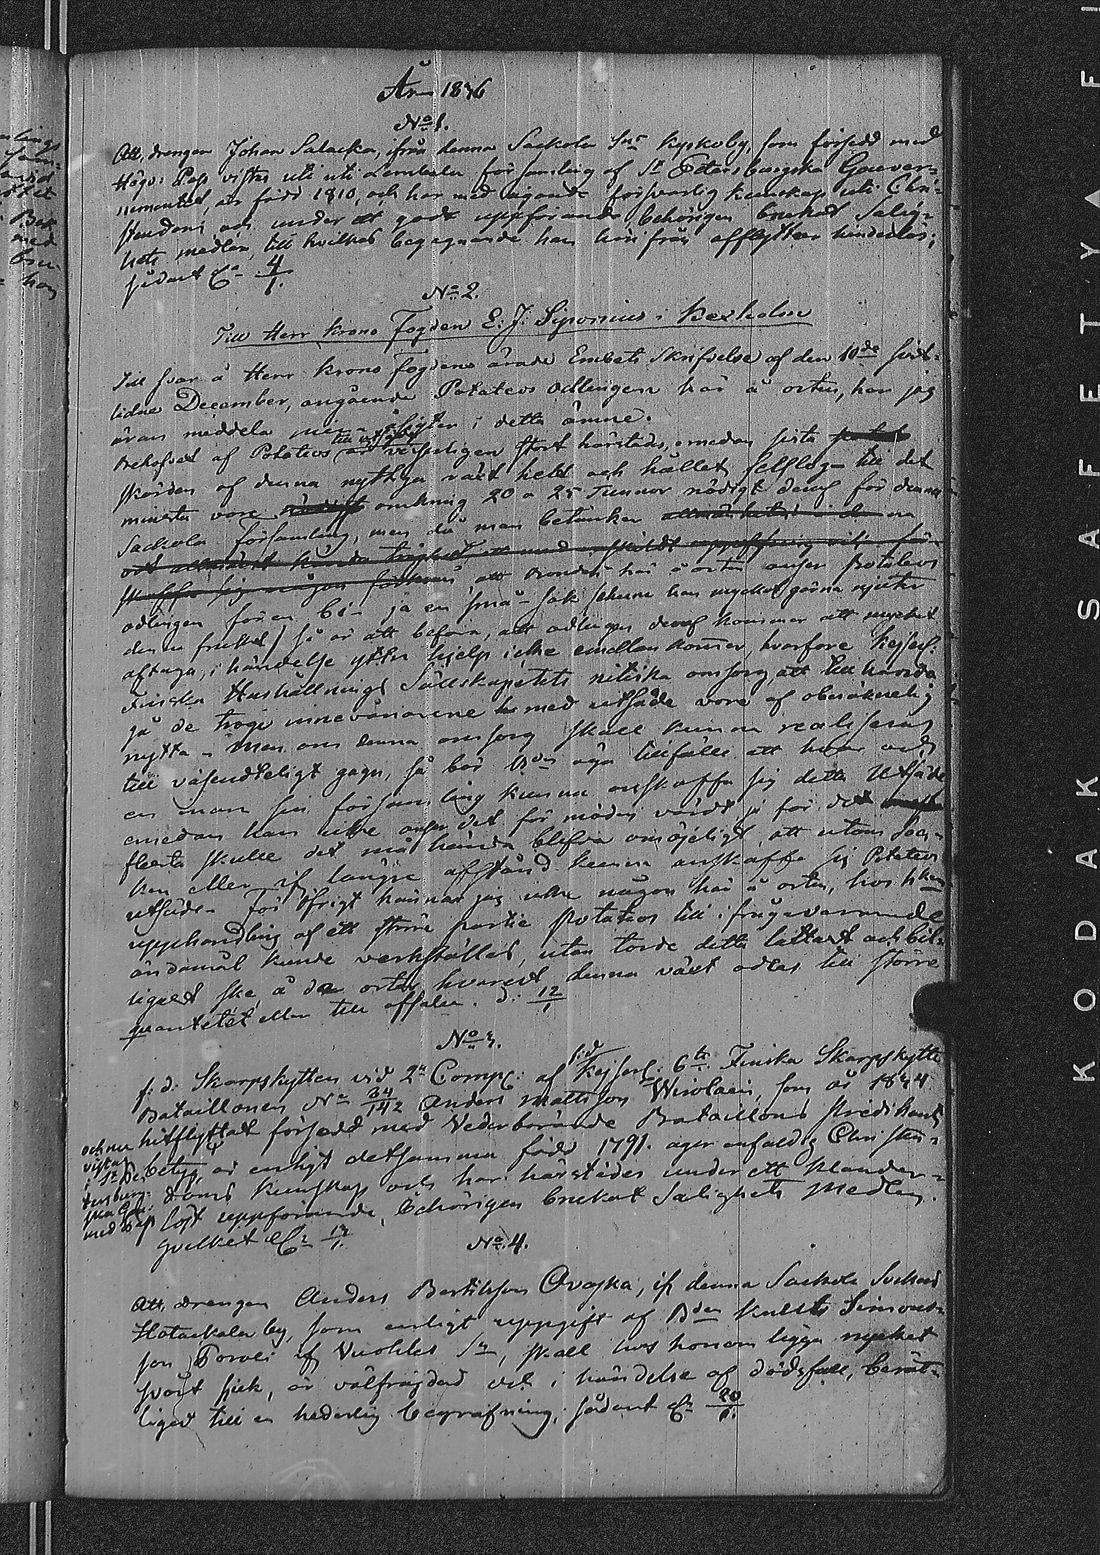 År 1846
No 1.
Att drengen Johan Salacka, ifrån denna Sackola Sns Kyskoby, som försedd med
Högv: Pass vistas uti uti Lembala församling af St Petersburgska Gouver-
nementet, är född 1810, och har med ägande försvarlig kunskap uti Chri-
stendom och under ett godt uppförande behörigen brukat Salig-
hets medlen, till hvilkas begagnande han härifrån afflyttar hinderlös;
sådant 4/1.
No 2.
Till Herr Krono Fogden E. J. Siponius i Kexholm
Till svar å Herr Krono Fogdens ärade Embets Skrifvelse af den 10de sist-
lidne December, angående Potateos odlingen här å orten, har jag
äran meddela i detta ämne.
Behofvet af Potateos till utsäde är verkeligen stort härstädes, emedan sista
skörden af denna nyttiga växt helt och hållet felslog - till det
minsta vore omkring 20 a 25 Tunnor nödigt deraf för denna
Sackola Församling, men då man betänker
att Bonden här å orten anser potateos
odlingen för en bi- ja en små-sak (ehuru han mycket gerna njuter
den frukt) så är att befara, att odlingen deraf kommer att mycket
aftaga, i händelse yttre hjelp icke emellankommer, hvarföre Kejserl:
Finska Hushållnings Sällskapets nitiska omsorg att tillhanda
gå de tröge innevånarene med utsäde vore af oberäknelig
nytta - Men om denna omsorg skall kunna realiseras
till väsendteligt gagn, så bör Bden äga tillfälle att hvar och
en inom sin församling kunna anskaffa sig detta Utsäde
emedan han icke anser det för mödan värdt ja för de
flesta skulle det må hända blefva omöjeligt, att utom Soc-
ken eller af längre afstånd kunna anskaffa sig Potateos
utsäde. För öfrigt känner jag icke någon här å orten, hos hken
upphandling af ett större partie potateos till ifrågavarande
ändamål kunde verkställas, utan torde detta lättast och bil-
ligast ske, å de orter hvarest denna växt odlas till större
quantitet eller till afsalu. d: 12/1
No 3.
f: d: Skarpskytten vid 2a Comp: af f.d. Kejserl: 6te Finska Skarpskytte
Bataillonen No 34/142 Anders Mattsson Wirolain, som år 1844
hitflyttat försedd med Vederbörande Bataillons Predikants
betyg, är enligt detsamma född 1791. äger enfaldig Christen-
doms kunskap och har härstädes under ett klander-
löst uppförande, behörigen brukat Salighets medlen.
och nu
vistas
i St Pe-
tersburg-
ska Gou:
med Pass
hvilket
No 4.
Att drengen Anders Bertilsson Ovaska, if: denna Sackola Sockens
Hatackala by, som enligt uppgift af Bden Simons-
son Torvei af Sn, skall hos honom ligga mycket
svårt sjuk, är välfrägdad och i händelse af dödsfall, berät-
tigad till en hederlig begrafning; sådant 20/1.